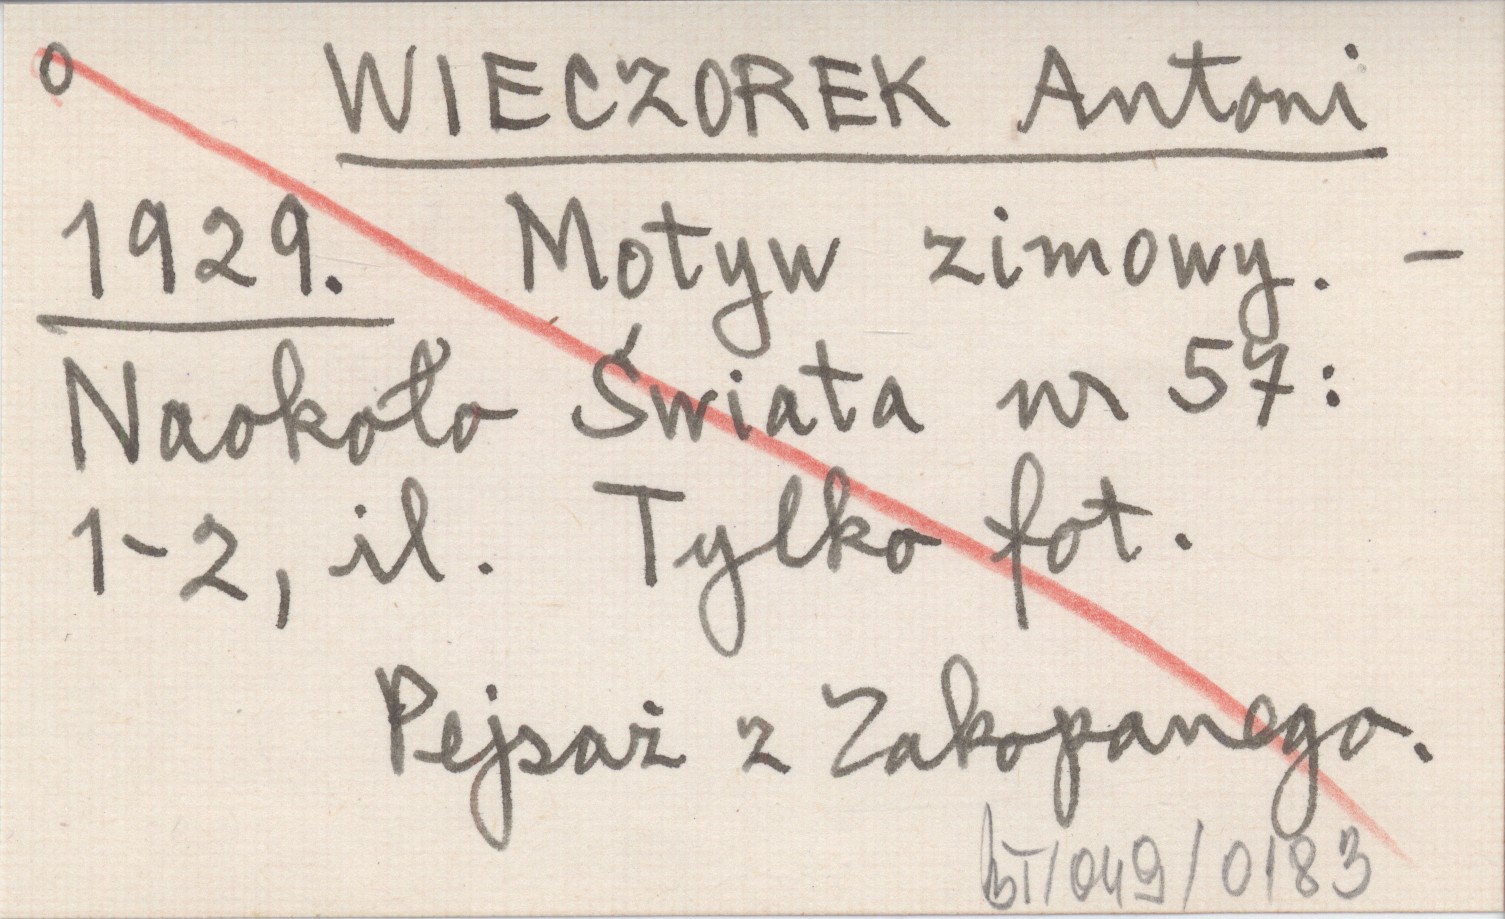 o WIECZOREK Antoni
1929. Motyw zimowy. –
Naokoło Świata nr 57:
1-2, il. Tylko fot.
Pejsaż z Zakopanego.
BT/049/0183